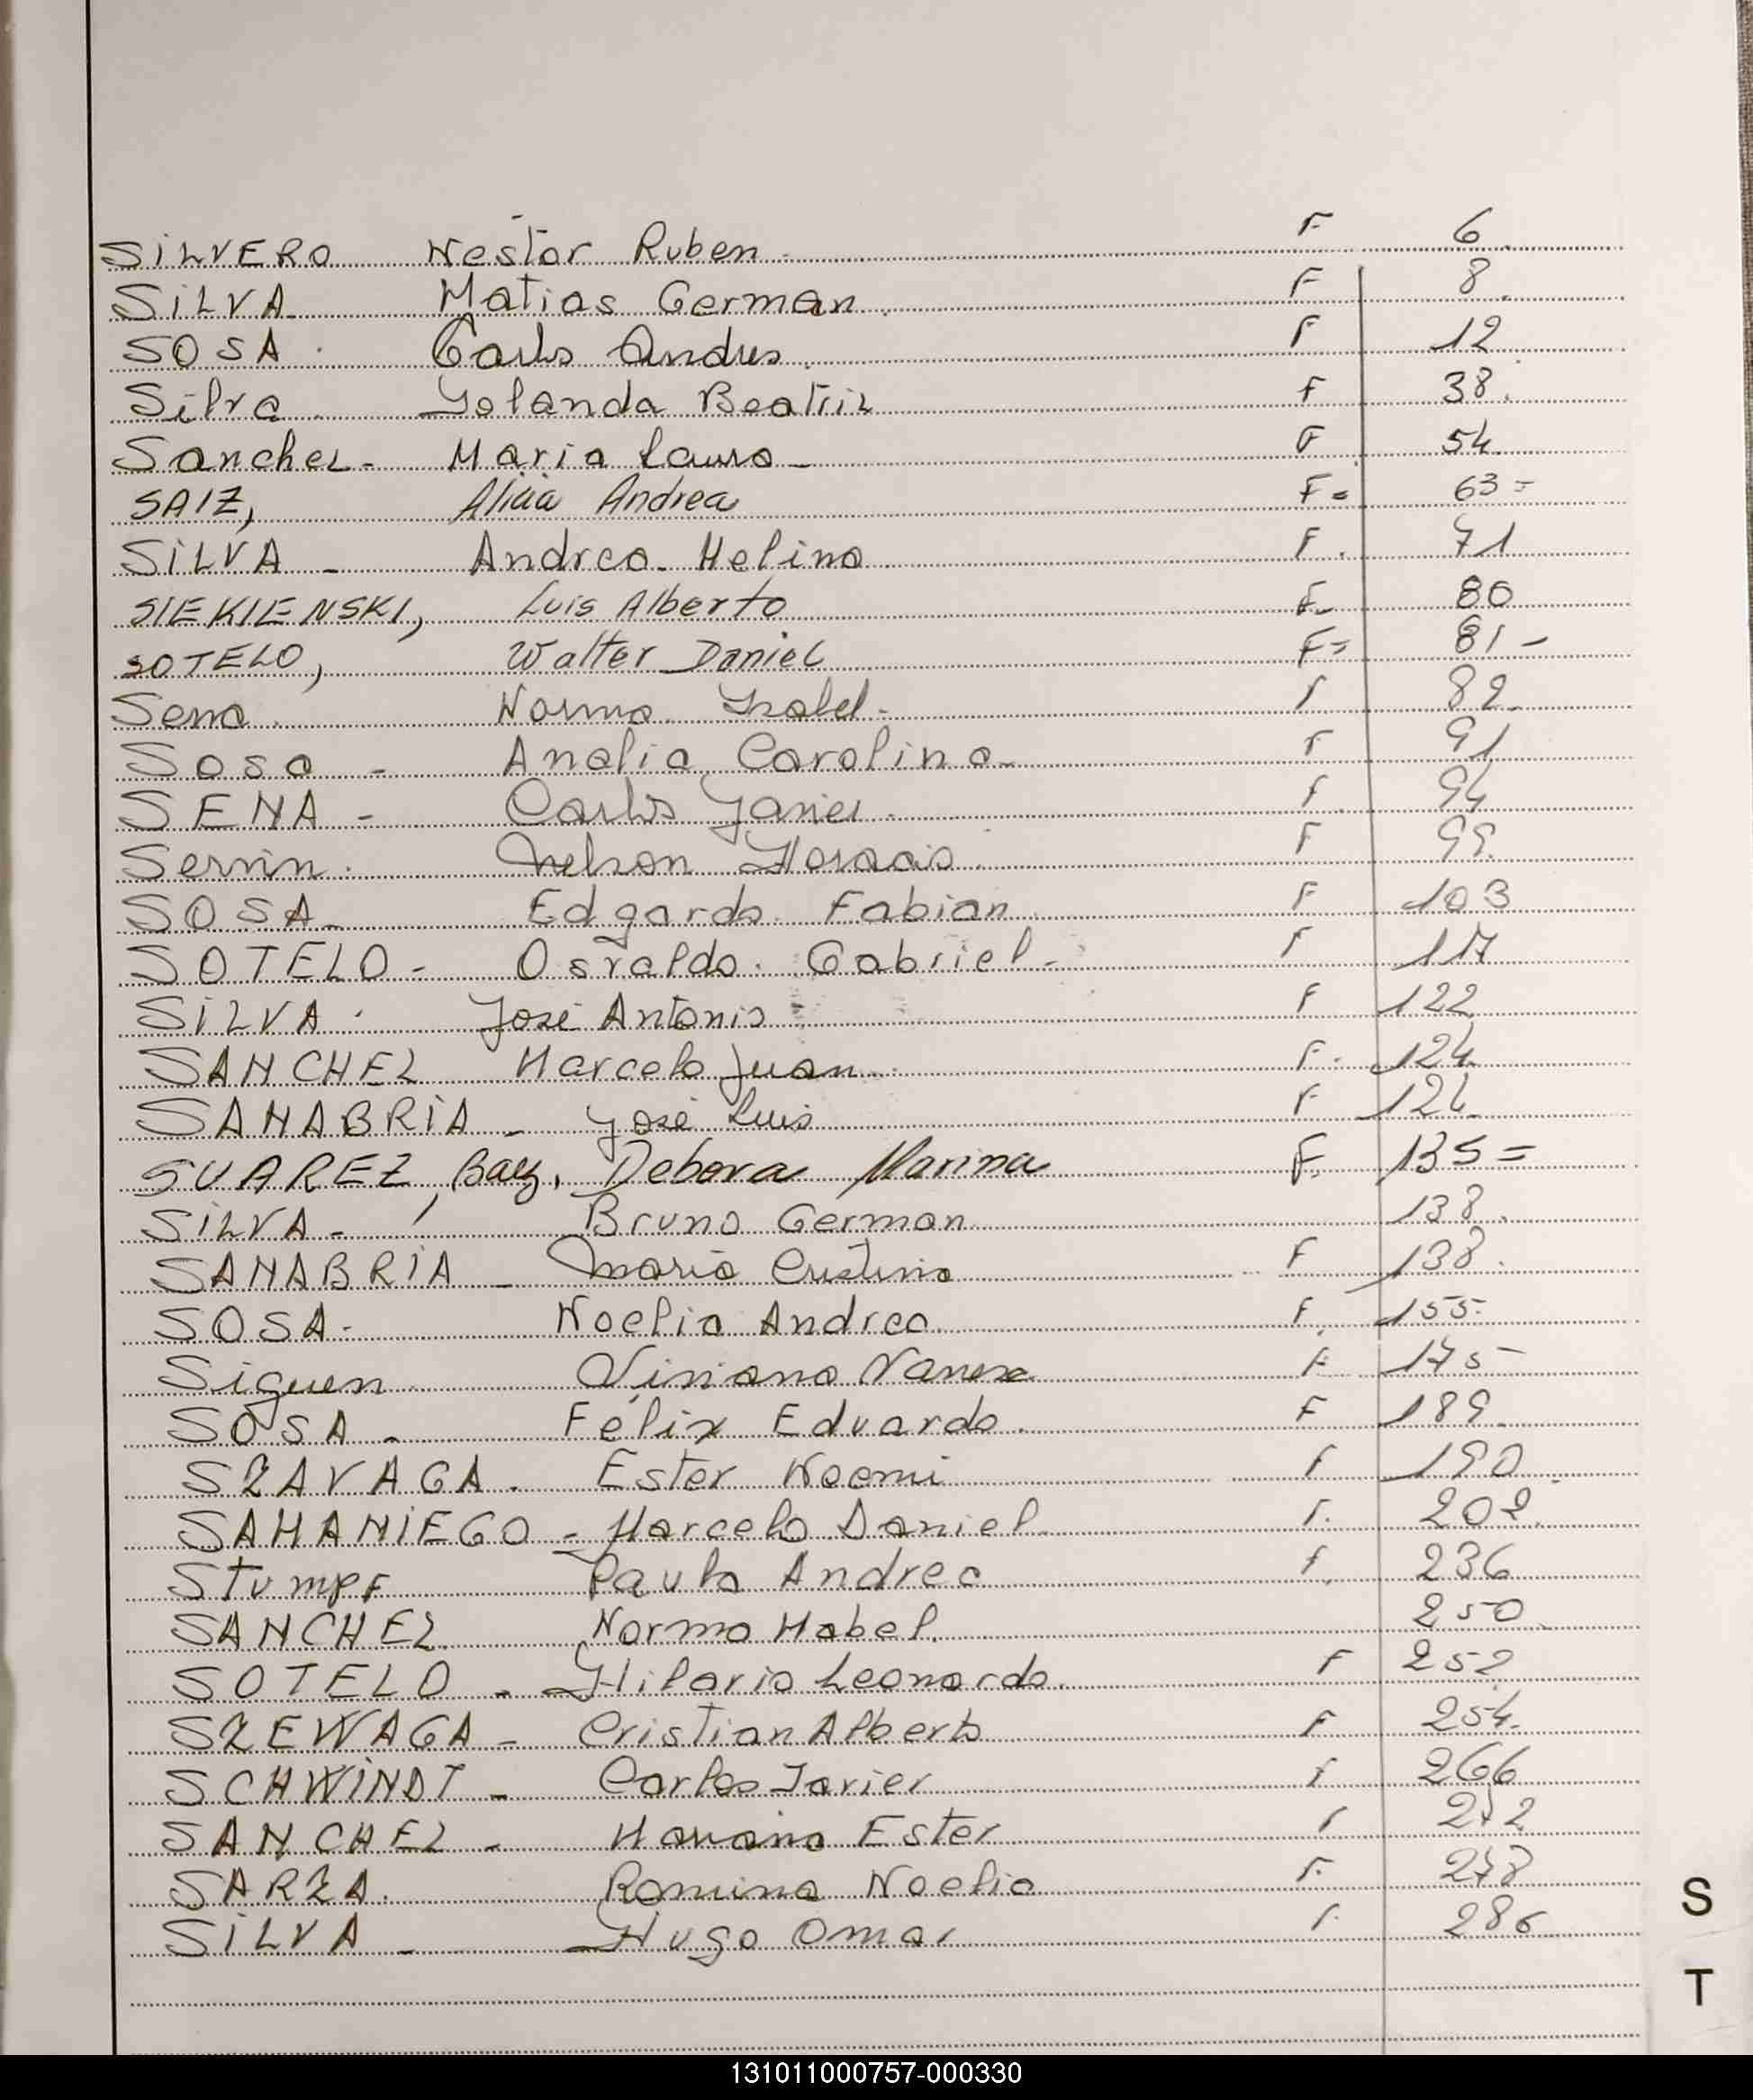 SILVERO Nestor Ruben. F 6.
SILVA Matias German. F 8.
SOSA. Carlos Andres. F 12
Silva Yolanda Beatriz F 38.
Sanchez- Maria Laura- F 54.
SAIZ, Alicia Andrea F= 63=
SILVA- Andrea Melina F. 71
SIEKIENSKI, Luis Alberto F- 80
SOTELO, Walter Daniel F= 81-
Sena Norma Isabel- F 82.
Sosa- Analia Carolina- F 91
SENA- Carlos Javier. F. 94
Servin. Nelson Horacio. F 99.
SOSA- Edgardo Fabian F 103
SOTELO- Osvaldo. Gabriel- F 117
SILVA. José Antonio F 122
SANCHEZ Marcelo Juan F. 124
SANABRIA- José Luis F 124
SUAREZ, Baez, Debora Marina F. 135=
SILVA- Bruno German 138.
SANABRIA- Maria Cristina F 138.
SOSA- Noelia Andrea F. 155-
Siguen Viviana Vanesa F 175-
SOSA- Félix Eduardo. F 189.
SZAVAGA. Ester Noemi F 190.
SAMANIEGO- Marcelo Daniel F. 202.
Stumpf Paula Andrea F. 236
SANCHEZ Norma Mabel. 250.
SOTELO- Hilario Leonardo. F 252
SZEWAGA- Cristian Alberto F 254.
SCHWINDT- Carlos Javier F 266
SANCHEZ- Mariana Ester F 272
SARZA. Romina Noelia F. 278
SILVA- Hugo Omar F. 286
S
T
131011000757-000330